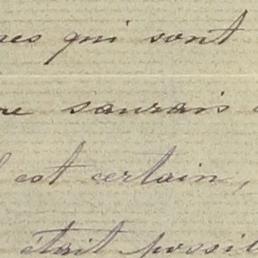 qui sont
saurais
est certain,
était possi